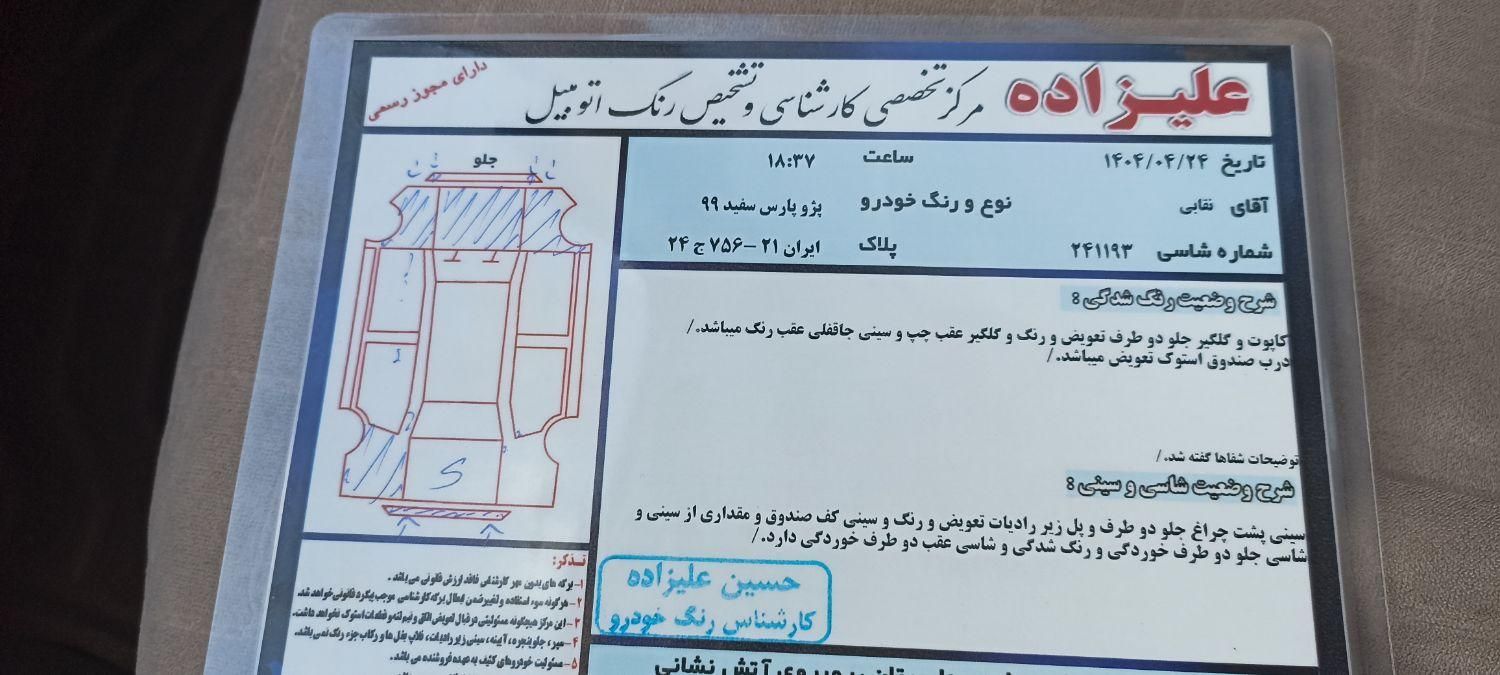 علیزاده
مرکز تخصصی کارشناسی و تشخیص رنگ اتومبیل
دارای مجوز رسمی
تاریخ ۱۴۰۴/۰۴/۲۴ ساعت ۱۸:۳۷
آقای نقابی نوع و رنگ خودرو پژو پارس سفید ۹۹
شماره شاسی ۲۴۱۱۹۳ پلاک ایران ۲۱ – ۷۵۶ ج ۲۴
جلو
S
شرح وضعیت رنگ شدگی :
کاپوت و گلگیر جلو دو طرف تعویض و رنگ و گلگیر عقب چپ و سینی جاقفلی عقب رنگ میباشد./
درب صندوق استوک تعویض میباشد./
توضیحات شفاها گفته شد./
شرح وضعیت شاسی و سینی :
سینی پشت چراغ جلو دو طرف و پل زیر رادیات تعویض و رنگ و سینی کف صندوق و مقداری از سینی و
شاسی جلو دو طرف خوردگی و رنگ شدگی و شاسی عقب دو طرف خوردگی دارد./
حسین علیزاده
کارشناس رنگ خودرو
تذکر:
۱- برگه های بدون مهر کارشناس فاقد ارزش قانونی می باشد .
۲- هرگونه سوء استفاده و تغییر ضمن ابطال برگه کارشناسی موجب پیگرد قانونی خواهد شد.
۳- این مرکز هیچگونه مسئولیتی در قبال تعویض اتاق و نیم تنه و قطعات استوک نخواهد داشت.
۴- سپر ، جلو پنجره ، آیینه ، سینی زیر رادیات، قلاب بغل ها و رکاب جزء رنگ نمی باشد.
۵- مسئولیت خودروهای کثیف به عهده فروشنده می باشد .
روبروی آتش نشانی